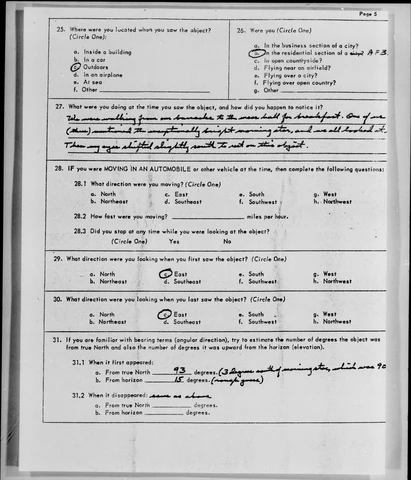 Page 5
25. Where were you located when you saw the object?
(Circle One):
a. Inside a building
b. In a car
c. Outdoors
d. In an airplane
e. At sea
f. Other
26. Were you (Circle One)
a. In the business section of a city?
b. In the residential section of a city? AFB
c. In open countryside?
d. Flying near an airfield?
e. Flying over a city?
f. Flying over open country?
g. Other
27. What were you doing at the time you saw the object, and how did you happen to notice it?
We were walking from our barracks to the mess hall for breakfast. One of us
(three) mentioned the exceptionally bright morning star, and we all looked at it.
Then my eyes shifted slightly south to rest on this object.
28. IF you were MOVING IN AN AUTOMOBILE or other vehicle at the time, then complete the following questions:
28.1 What direction were you moving? (Circle One)
a. North c. East e. South g. West
b. Northeast d. Southeast f. Southwest h. Northwest
28.2 How fast were you moving? miles per hour.
28.3 Did you stop at any time while you were looking at the object?
(Circle One) Yes No
29. What direction were you looking when you first saw the object? (Circle One)
a. North c. East e. South g. West
b. Northeast d. Southeast f. Southwest h. Northwest
30. What direction were you looking when you last saw the object? (Circle One)
a. North c. East e. South g. West
b. Northeast d. Southeast f. Southwest h. Northwest
31. If you are familiar with bearing terms (angular direction), try to estimate the number of degrees the object was
from true North and also the number of degrees it was upward from the horizon (elevation).
31.1 When it first appeared:
a. From true North 93 degrees. (3 degrees south of morning star, which was 90
b. From horizon 15 degrees. (rough guess)
31.2 When it disappeared: same as above
a. From true North degrees.
b. From horizon degrees.